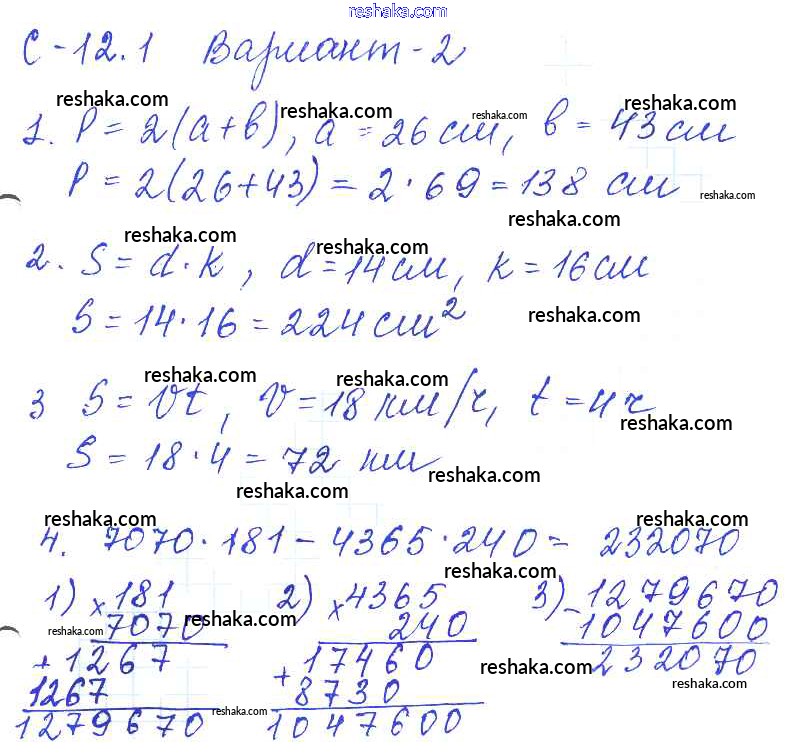 reshaka.com
С-12.1 Вариант-2
reshaka.com reshaka.com reshaka.com reshaka.com
1. P = 2(a+b), a = 26 см, b = 43 см
P = 2(26+43) = 2·69 = 138 см
reshaka.com
reshaka.com reshaka.com reshaka.com
2. S = d·k, d = 14 см, k = 16 см
S = 14·16 = 224 см²
reshaka.com
reshaka.com reshaka.com
3 S = Vt, V = 18 км/ч, t = 4 ч
reshaka.com
S = 18·4 = 72 км
reshaka.com reshaka.com
reshaka.com reshaka.com
4. 7070·181 - 4365·240 = 232070
reshaka.com
1) × 181 2) × 4365 3) - 1279670
7070 240 1047600
reshaka.com reshaka.com
+ 1267 + 17460 232070
reshaka.com reshaka.com
1267 8730
reshaka.com
1279670 1047600
reshaka.com